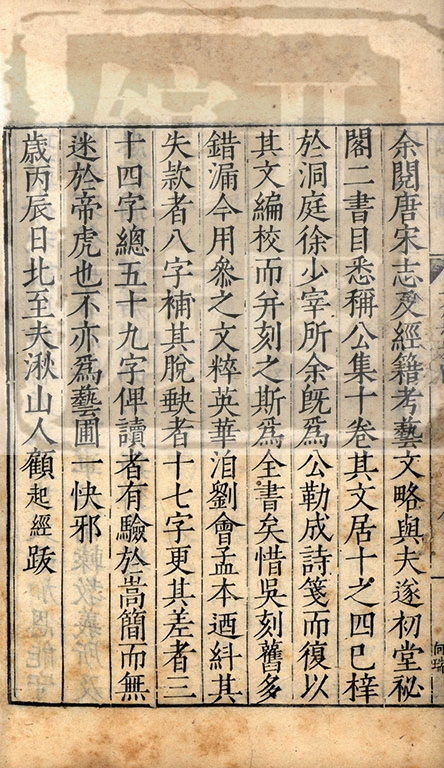 余閱唐宋志及經籍考藝文略與夫遂初堂祕
閣二書目悉稱公集十卷其文居十之四已梓
於洞庭徐少宰所余旣爲公勒成詩箋而復以
其文編校而并刻之斯爲全書矣惜吳刻舊多
錯漏今用參之文粹英華洎劉會孟本迺糾其
失款者八字補其脫缺者十七字更其差者三
十四字總五十九字俾讀者有驗於蒿簡而無
迷於帝虎也不亦爲藝圃一快邪
歲丙辰日北至夫湫山人顧起經跋
何瑞